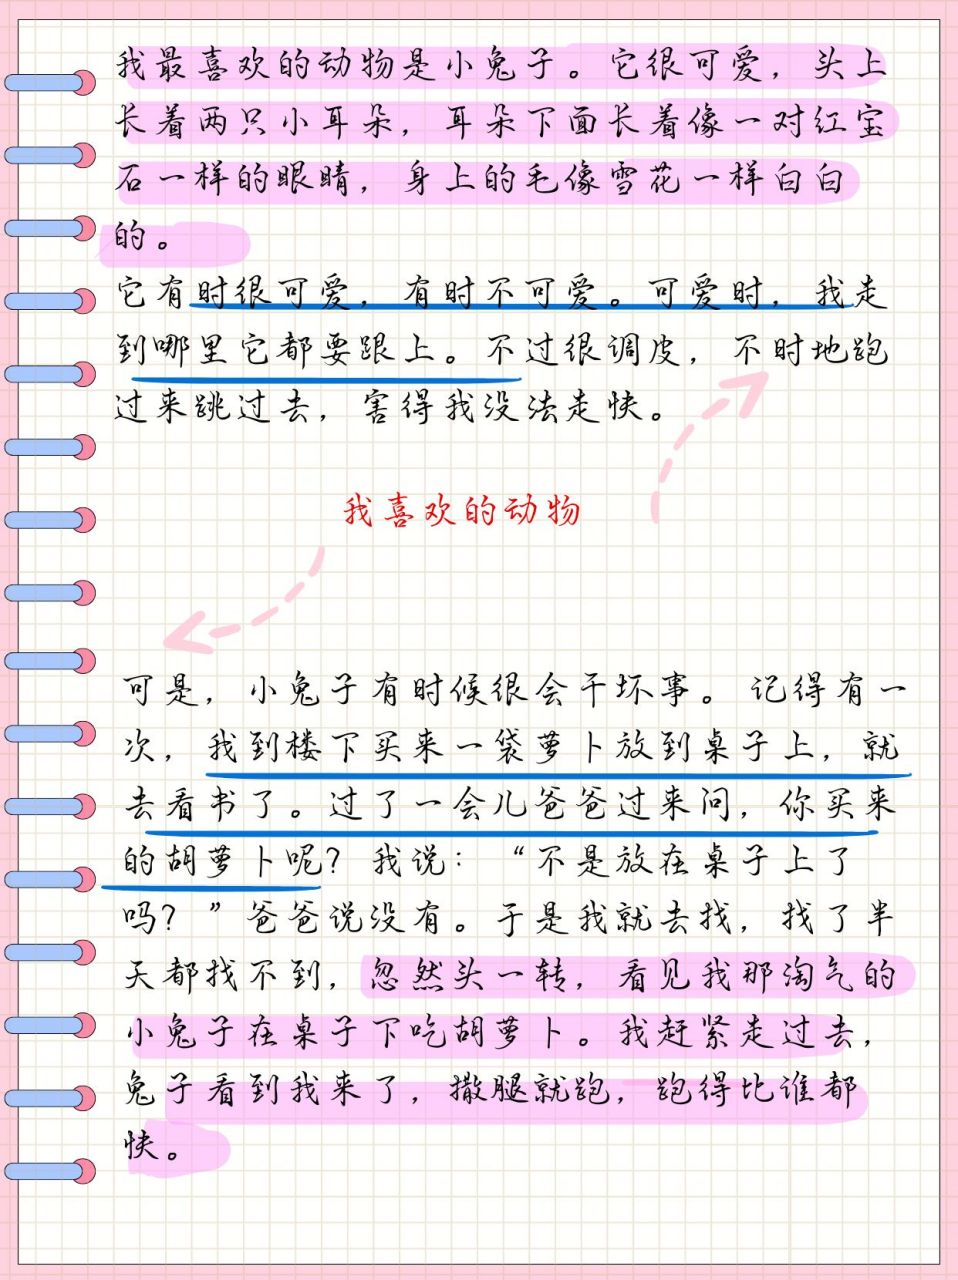 我最喜欢的动物是小兔子。它很可爱，头上
长着两只小耳朵，耳朵下面长着像一对红宝
石一样的眼睛，身上的毛像雪花一样白白
的。
它有时很可爱，有时不可爱。可爱时，我走
到哪里它都要跟上。不过很调皮，不时地跑
过来跳过去，害得我没法走快。
我喜欢的动物
可是，小兔子有时候很会干坏事。记得有一
次，我到楼下买来一袋萝卜放到桌子上，就
去看书了。过了一会儿爸爸过来问，你买来
的胡萝卜呢？我说：“不是放在桌子上了
吗？”爸爸说没有。于是我就去找，找了半
天都找不到，忽然头一转，看见我那淘气的
小兔子在桌子下吃胡萝卜。我赶紧走过去，
兔子看到我来了，撒腿就跑，跑得比谁都
快。